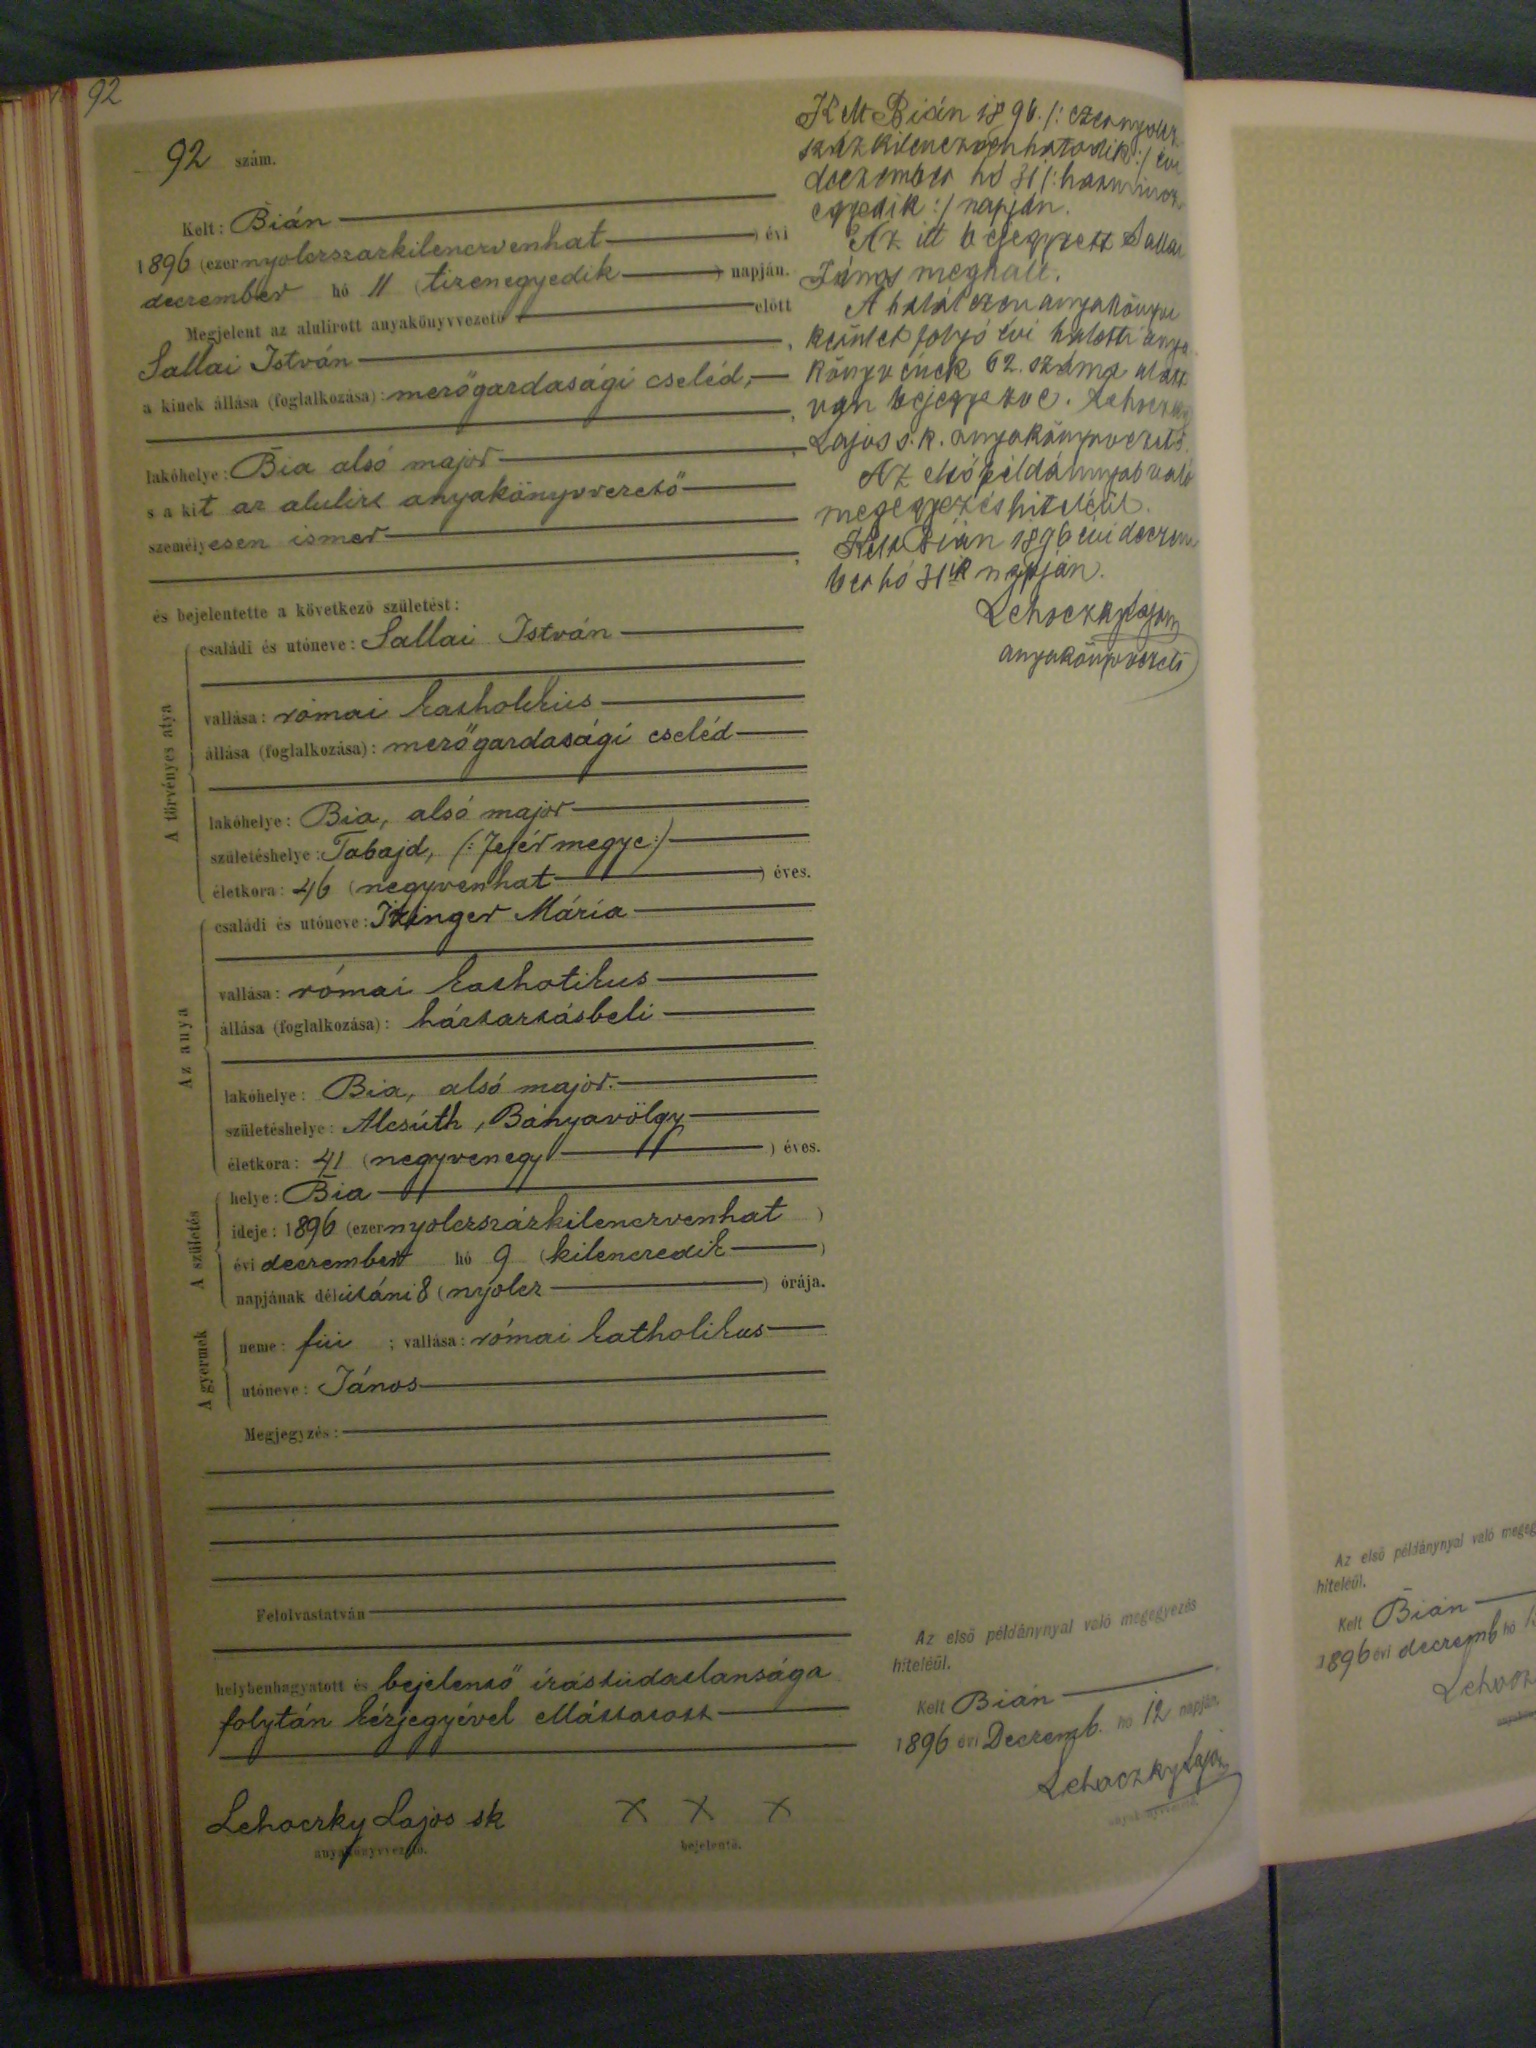 92
92 szám.
Kelt: Bián
1896 (ezernyolczszázkilenczvenhat ) évi
deczember hó 11 (tizenegyedik ) napján.
Megjelent az alulirott anyakönyvvezető előtt
Sallai István ,
a kinek állása (foglalkozása): mezőgazdasági cseléd, ,
lakóhelye: Bia alsó major ,
s a kit az alulirt anyakönyvvezető
személyesen ismer ,
és bejelentette a következő születést:
A törvényes atya
családi és utóneve: Sallai István
vallása: római katholikus
állása (foglalkozása): mezőgazdasági cseléd
lakóhelye: Bia, alsó major
születéshelye: Tabajd, (: Fejér megye :)
életkora: 46 (negyvenhat ) éves.
Az anya
családi és utóneve: Izinger Mária
vallása: római katholikus
állása (foglalkozása): háztartásbeli
lakóhelye: Bia, alsó major.
születéshelye: Alcsúth, Bányavölgy
életkora: 41 (negyvenegy ) éves.
A születés
helye: Bia
ideje: 1896 (ezernyolczszázkilenczvenhat )
évi deczember hó 9 (kilenczedik )
napjának délutáni 8 (nyolcz ) órája.
A gyermek
neme: fiú ; vallása: római katholikus
utóneve: János
Megjegyzés:
Felolvastatván
helybenhagyatott és bejelentő írástudatlansága
folytán kézjegyével elláttatott
Lehoczky Lajos sk
anyakönyvvezető.
x x x
bejelentő.
Kelt Bián 1896. /: ezernyolcz
százkilenczvenhatodik :/ évi
deczember hó 31 /: harmincz
egyedik :/ napján.
Az itt bejegyzett Sallai
János meghalt.
A halál ezen anyakönyvi
kerület folyó évi halotti anya
könyvének 62. száma alatt
van bejegyezve. Lehoczky
Lajos s.k. anyakönyvvezető.
Az első példánnyal való
megegyezés hiteléül.
Kelt Bián 1896 évi deczem
ber hó 31ik napján.
Lehoczky Lajos
anyakönyvvezető
Az első példánynyal való megegyezés
hiteléül.
Kelt Bián
1896 évi Deczemb. hó 12 napján
Lehoczky Lajos
anyakönyvvezető
Az első példánynyal való
hiteléül.
Kelt Bián
1896 évi deczemb hó